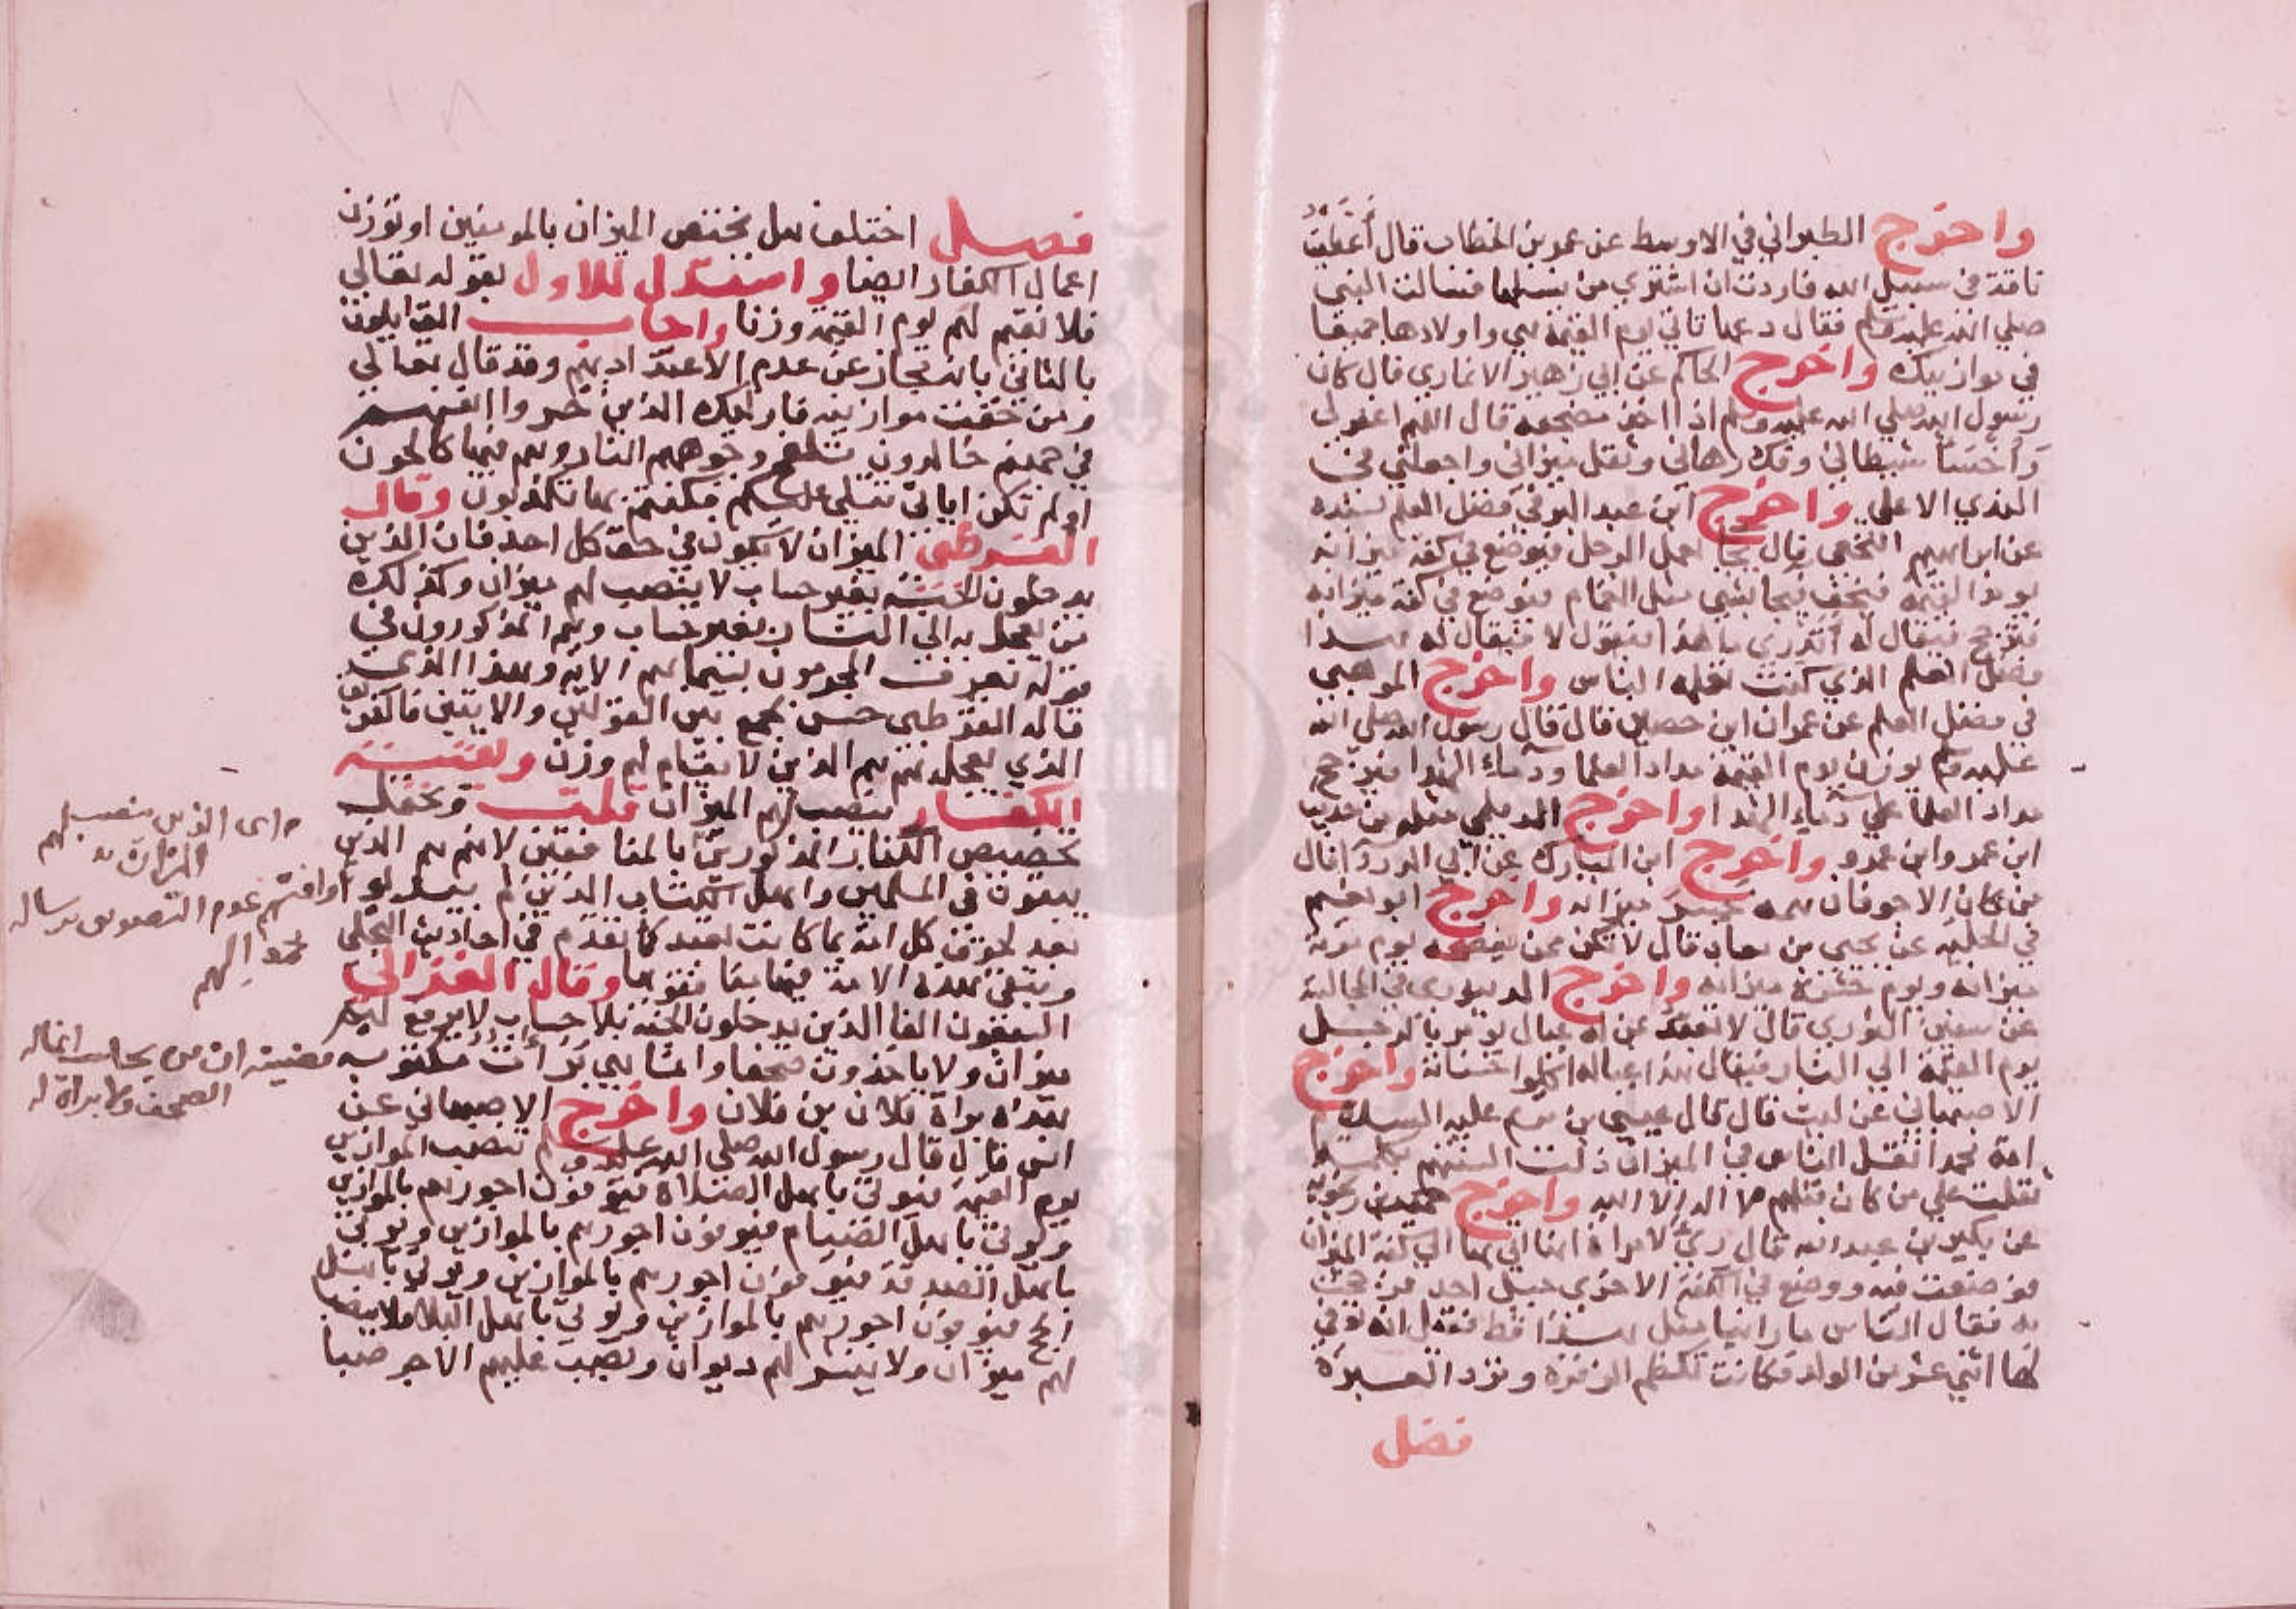 واخرج الطبراني في الاوسط عن عمر بن الخطاب قال أعطيت
ناقة في سبيل الله فاردت ان اشتري من نسلها فسالت النبي
صلي الله عليه وسلم فقال دعها تاتي يوم القيمة هي واولادها جميعا
في موازينك واخرج الحاكم عن ابي زهير الانماري قال كان
رسول الله صلي الله عليه وسلم اذا اخذ مضجعه قال اللهم اغفر لي
وأخسأ شيطاني وفك رهاني وثقل ميزاني واجعلني في
الندي الاعلي واخرج ابن عبد البر في فضل العلم بسنده
عن ابراهيم النخعي قال يجا بعمل الرجل فيوضع في كفة ميزانه
يوم القيمة فيخف فيجا بشي مثل الغمام فيوضع في كفة ميزانه
فيرجح فيقال له أتدري ما هذا فيقول لا فيقال له هذا
فضل العلم الذي كنت تعلمه الناس واخرج الموهبي
في فضل العلم عن عمران ابن حصين قال قال رسول الله صلي الله
عليه وسلم يوزن يوم القيمة مداد العلما ودماء الشهدا فيرجح
مداد العلما علي دماء الشهدا واخرج الديلمي مثله من حديث
ابن عمر وابن عمرو واخرج ابن المبارك عن ابي الدردا قال
من كان الاجوفان همه خسر ميزانه واخرج ابو نعيم
في الحلية عن يحيي بن معاد قال لا تكن ممن يفضحه يوم موته
ميزانه ويوم حشره ميزانه واخرج الدينوري في المجالسة
عن سفين الثوري قال
يوم القيمة الي النار فيقال هذا عياله اكلوا حسناته واخرج
الاصبهاني عن ليث قال قال عيسي بن مريم عليه السلام
امة محمد اثقل الناس في الميزان ذلت السنتهم بكلمة
ثقلت علي من كان قبلهم لا اله الا الله واخرج حميد بن زنجويه
عن بكير بن عبد الله قال
فوضعت فيه ووضع في الكفة الاخري جبل احد فرجحت
به فقال الناس ما راينا مثل هذا قط فقيل انه توفي
لها اثني عشر من الولد فكانت تكظم الزفرة وترد العبرة
فصل
فصل اختلف هل يختص الميزان بالمومنين او توزن
اعمال الكفار ايضا واستدل للاول بقوله تعالي
فلا نقيم لهم يوم القيمة وزنا واجاب القايلون
بالثاني بانه مجاز عن عدم الاعتداد بهم وقد قال تعالي
ومن خفت موازينه فاوليك الذين خسروا انفسهم
في جهنم خالدون تلفح وجوههم النار وهم فيها كالحون
اولم تكن اياتي تتلي عليكم فكنتم بها تكذبون وقال
القرطبي الميزان لا يكون في حق كل احد فان الذين
يدخلون الجنة بغير حساب لا ينصب لهم ميزان وكذلك
من يعجل به الي النار بغير حساب وهم المذكورون في
قوله يعرف المجرمون بسيماهم الاية وهذا الذي
قاله القرطبي حسن يجمع بين القولين والايتين فالفريق
الذي يعجل بهم هم الذين لا يقام لهم وزن وبقية
الكفار ينصب لهم الميزان قلت ويحتمل
تخصيص الكفار المذكورين بالمنافقين لانهم هم الذين
يبقون في المسلمين واهل الكتاب الذين لم يبدلوا
بعد لحوق كل امة بما كانت تعبد كما تقدم في احاديث التجلي
وتبقي هذه الامة فيها منافقوها وقال الغزالي
السبعون الفا الذين يدخلون الجنة بلا حساب لا يرفع لهم
ميزان ولا ياخذون صحفا وانما هي برآات مكتوبة
هذه براة فلان بن فلان واخرج الاصبهاني عن
انس قال قال رسول الله صلي الله عليه وسلم تنصب الموازين
يوم القيمة فيوتي باهل الصلاة فيوفون اجورهم بالموازين
ويوتي باهل الصيام فيوفون اجورهم بالموازين ويوتي
باهل الصدقة فيوفون اجورهم بالموازين ويوتي باهل
الحج فيوفون اجورهم بالموازين ويوتي باهل البلا فلا ينصب
لهم ميزان ولا ينشر لهم ديوان ويصب عليهم الاجر صبا
الذين ينصب لهم
الميزان
الصحف ولا براة له